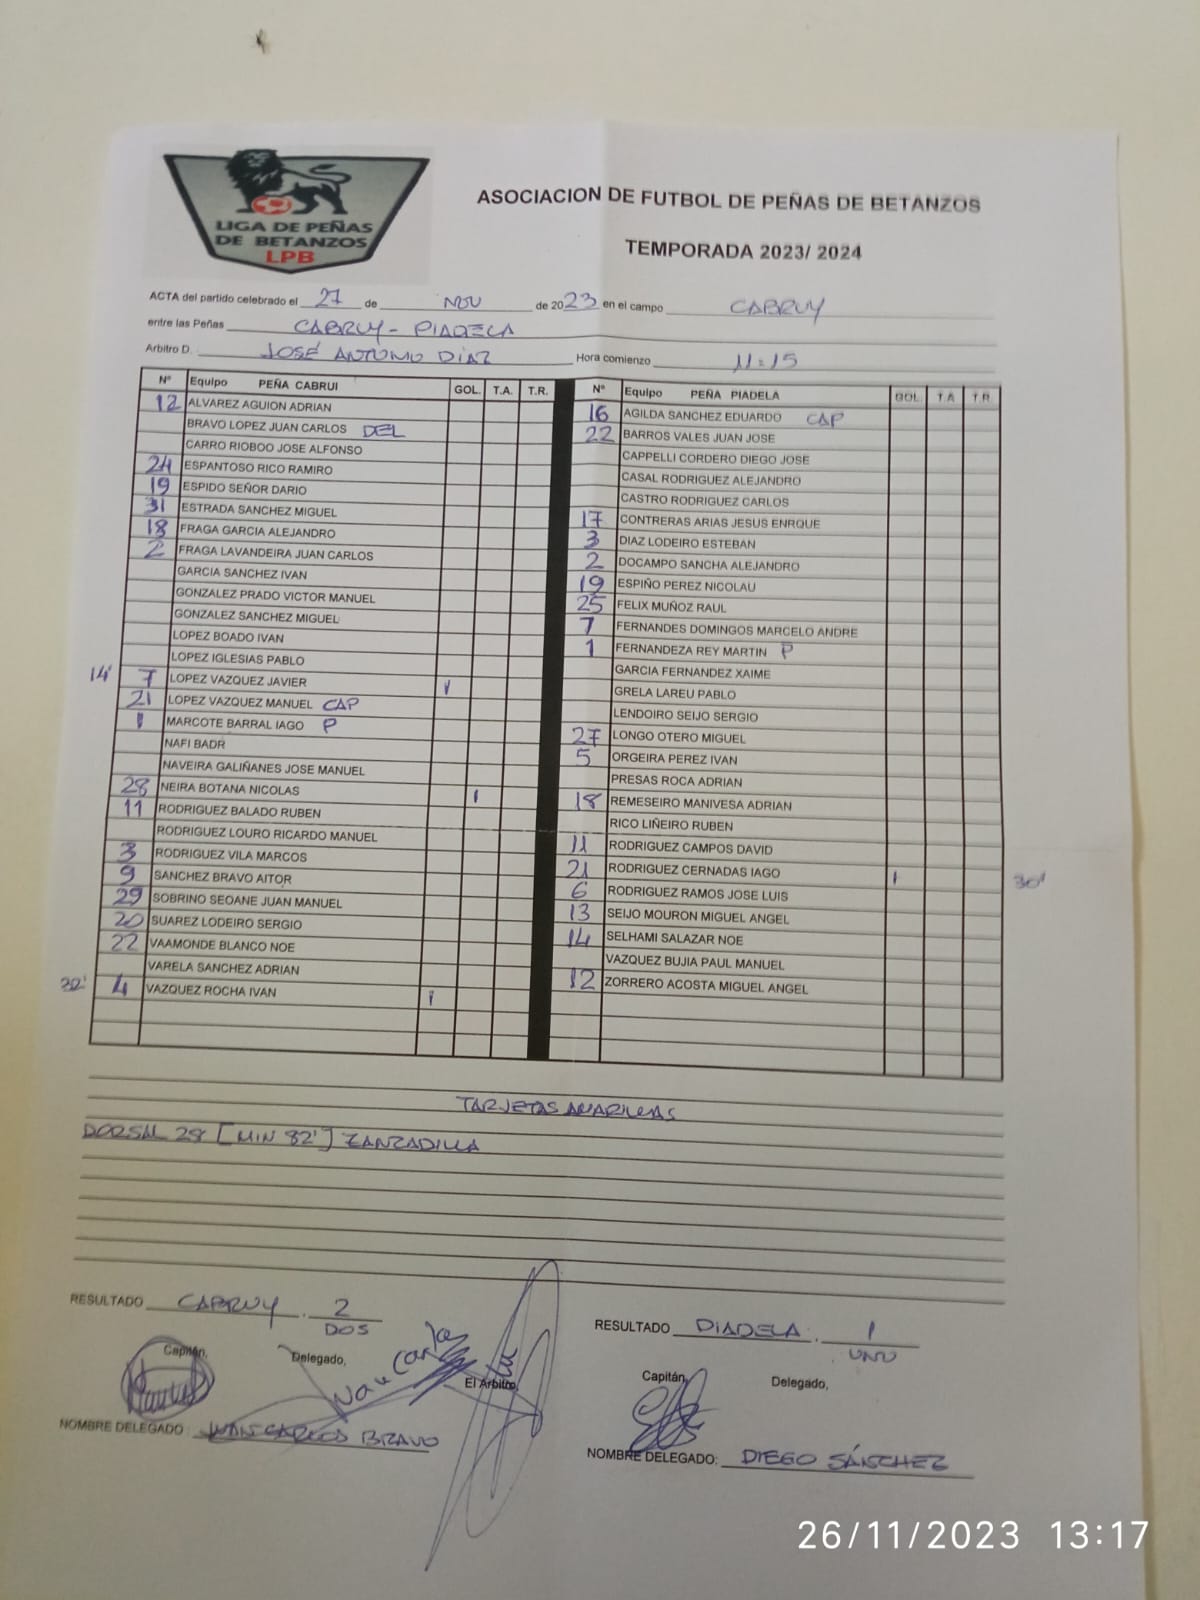 LIGA DE PEÑAS
DE BETANZOS
LPB
ASOCIACION DE FUTBOL DE PEÑAS DE BETANZOS
TEMPORADA 2023/ 2024
ACTA del partido celebrado el 27 de NOV de 2023 en el campo CABRUY
entre las Peñas CABRUY - PIADELA
Arbitro D. JOSÉ ANTONIO DÍAZ Hora comienzo 11:15
Nº Equipo PEÑA CABRUI GOL. T.A. T.R.
12 ALVAREZ AGUION ADRIAN
BRAVO LOPEZ JUAN CARLOS DEL
CARRO RIOBOO JOSE ALFONSO
24 ESPANTOSO RICO RAMIRO
19 ESPIDO SEÑOR DARIO
31 ESTRADA SANCHEZ MIGUEL
18 FRAGA GARCIA ALEJANDRO
2 FRAGA LAVANDEIRA JUAN CARLOS
GARCIA SANCHEZ IVAN
GONZALEZ PRADO VICTOR MANUEL
GONZALEZ SANCHEZ MIGUEL
LOPEZ BOADO IVAN
LOPEZ IGLESIAS PABLO
14' 7 LOPEZ VAZQUEZ JAVIER I
21 LOPEZ VAZQUEZ MANUEL CAP
1 MARCOTE BARRAL IAGO P
NAFI BADR
NAVEIRA GALIÑANES JOSE MANUEL
28 NEIRA BOTANA NICOLAS I
11 RODRIGUEZ BALADO RUBEN
RODRIGUEZ LOURO RICARDO MANUEL
3 RODRIGUEZ VILA MARCOS
9 SANCHEZ BRAVO AITOR
29 SOBRINO SEOANE JUAN MANUEL
20 SUAREZ LODEIRO SERGIO
22 VAAMONDE BLANCO NOE
VARELA SANCHEZ ADRIAN
32' 4 VAZQUEZ ROCHA IVAN I
Nº Equipo PEÑA PIADELA GOL. T.A T.R.
16 AGILDA SANCHEZ EDUARDO CAP
22 BARROS VALES JUAN JOSE
CAPPELLI CORDERO DIEGO JOSE
CASAL RODRIGUEZ ALEJANDRO
CASTRO RODRIGUEZ CARLOS
17 CONTRERAS ARIAS JESUS ENRQUE
3 DIAZ LODEIRO ESTEBAN
2 DOCAMPO SANCHA ALEJANDRO
19 ESPIÑO PEREZ NICOLAU
25 FELIX MUÑOZ RAUL
7 FERNANDES DOMINGOS MARCELO ANDRE
1 FERNANDEZA REY MARTIN P
GARCIA FERNANDEZ XAIME
GRELA LAREU PABLO
LENDOIRO SEIJO SERGIO
27 LONGO OTERO MIGUEL
5 ORGEIRA PEREZ IVAN
PRESAS ROCA ADRIAN
18 REMESEIRO MANIVESA ADRIAN
RICO LIÑEIRO RUBEN
11 RODRIGUEZ CAMPOS DAVID
21 RODRIGUEZ CERNADAS IAGO I 30'
6 RODRIGUEZ RAMOS JOSE LUIS
13 SEIJO MOURON MIGUEL ANGEL
14 SELHAMI SALAZAR NOE
VAZQUEZ BUJIA PAUL MANUEL
12 ZORRERO ACOSTA MIGUEL ANGEL
TARJETAS AMARILLAS
DORSAL 28 [MIN 82'] ZANZADILLA
RESULTADO CABRUY . 2
DOS
Capitán, Delegado, El Arbitro,
NOMBRE DELEGADO : JUAN CARLOS BRAVO
RESULTADO PIADELA . 1
UNO
Capitán, Delegado,
NOMBRE DELEGADO: DIEGO SÁNCHEZ
26/11/2023 13:17